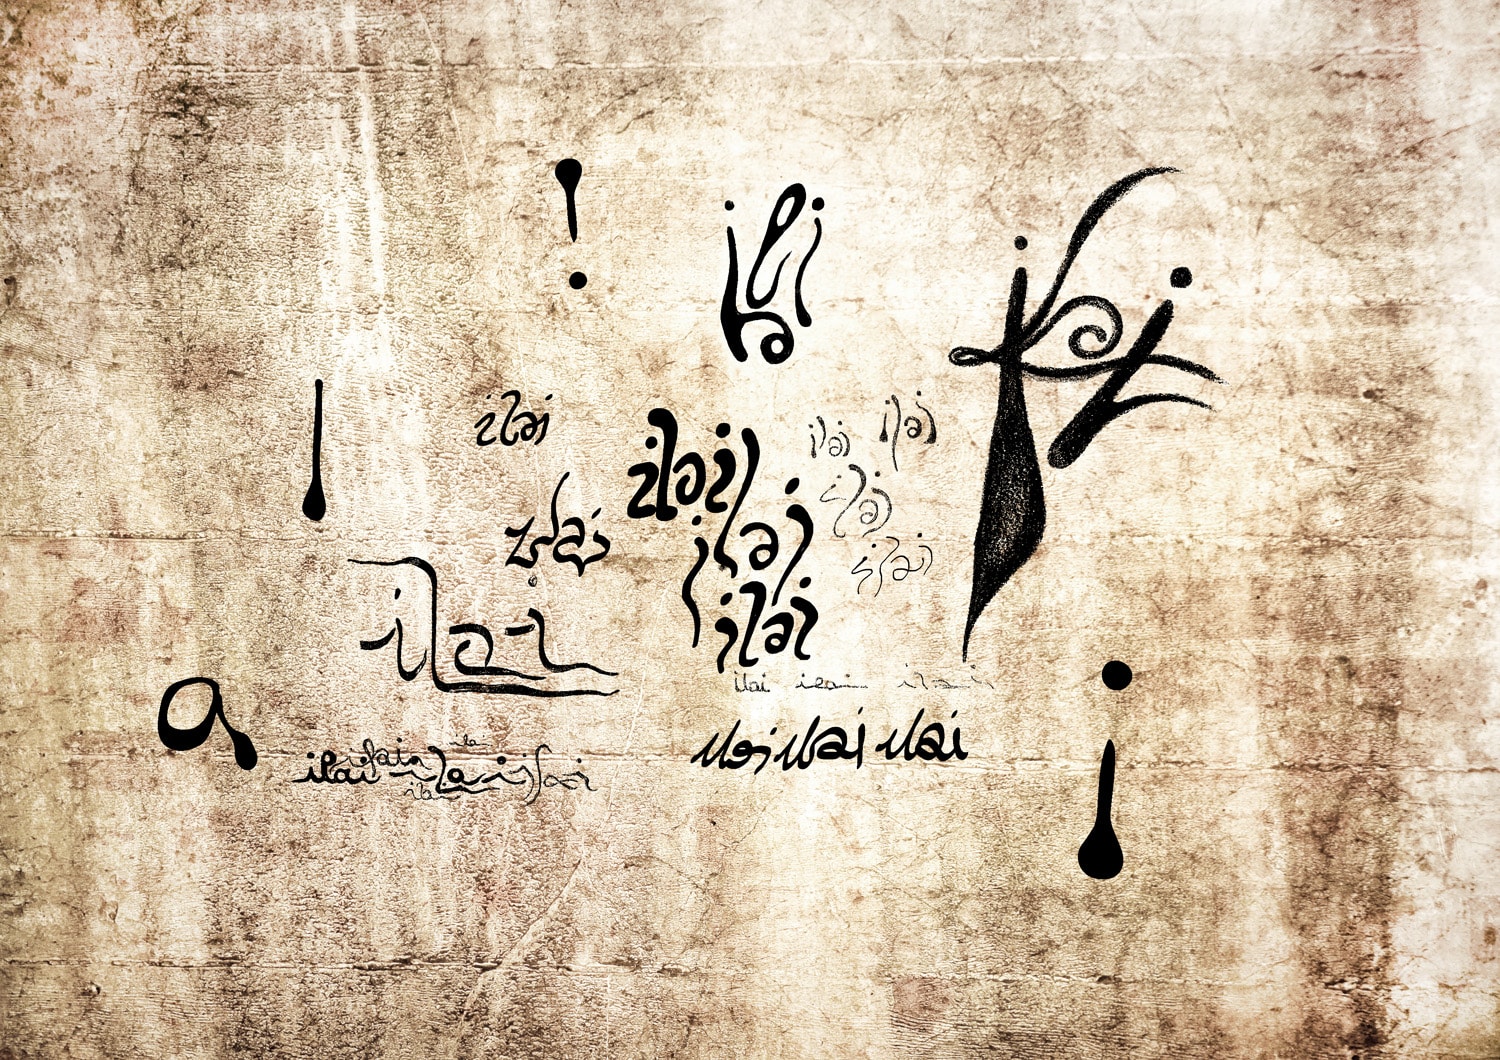 !
ilai
ilai
l
ilai
ilai
ilai
ilai
ilai
ilai
ilai
ilai
ilai
ilai
ilai
ilai ilai ilai
a
i
ilai ilai ilai
ilai ilai ilai ilai